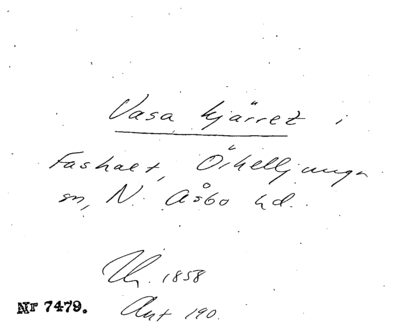 Vasa kjärret i
Fashalt, Örkelljunga
sn, N. Åsbo hd.
Th. 1858
Nr 7479.
Ant 190.